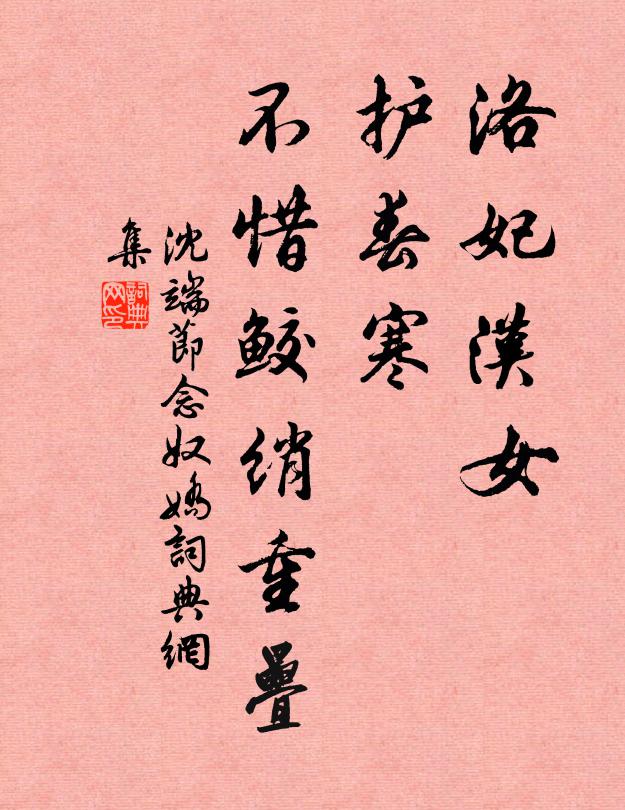 洛妃漢女
护春寒
不惜鮫绡重疊
沈端節念奴嬌詞典網
集
詞典
网印